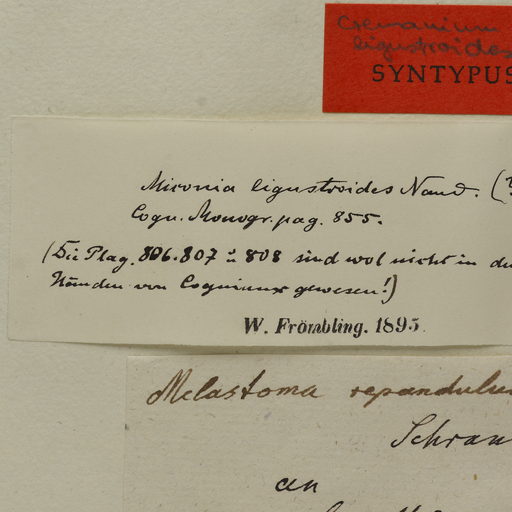 Cremanium
ligustroides
SYNTYPUS
Miconia ligustroides Naud. (
Cogn. Monogr. pag. 855.
(Die Plag. 806. 807 u 808 sind wol nicht in
Händen von Cogniaux gewesen!)
W. Frömbling. 1895.
Melastoma repandulu
Schran
an